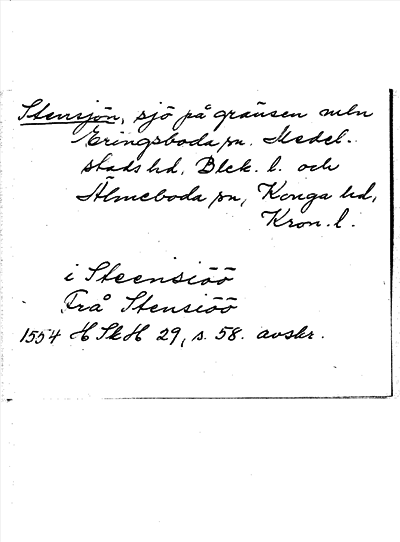 Stensjön, sjö på gränsen mln
Eringsboda sn. Medel-
stads hd, Blek. l. och
Älmeboda sn, Konga hd,
Kron. l.
i Steensiöö
Frå Stensiöö
1554 HSkH 29, s. 58. avskr.